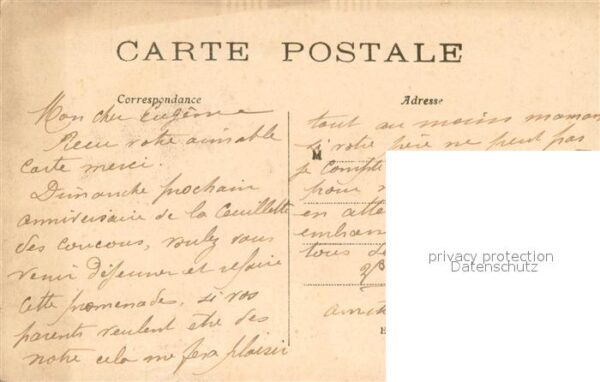 CARTE POSTALE
Correspondance
Adresse
Mon cher Eugène
Reçu votre aimable
carte merci.
Dimanche prochain
anniversaire de la Cueillette
des coucous, voulez vous
venir déjeuner et refaire
cette promenade, si vos
parents veulent être des
notre cela me fera plaisir
tout au moins maman
si votre père ne peut pas
M
je compte
pour
en atten
embrass
tous de
amit
privacy protection
Datenschutz